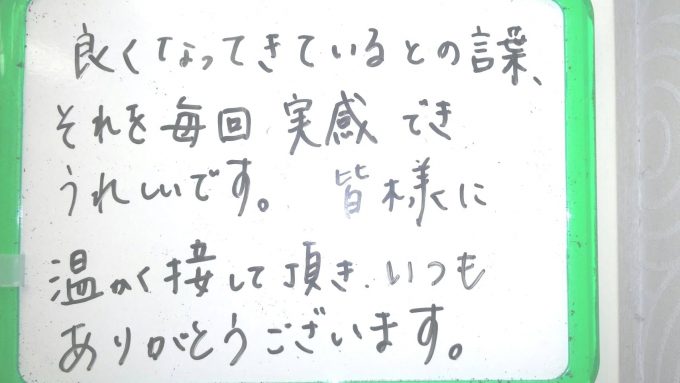 良くなってきているとの言葉、
それを毎回 実感 でき
うれしいです。 皆様に
温かく接して頂き、いつも
ありがとうございます。